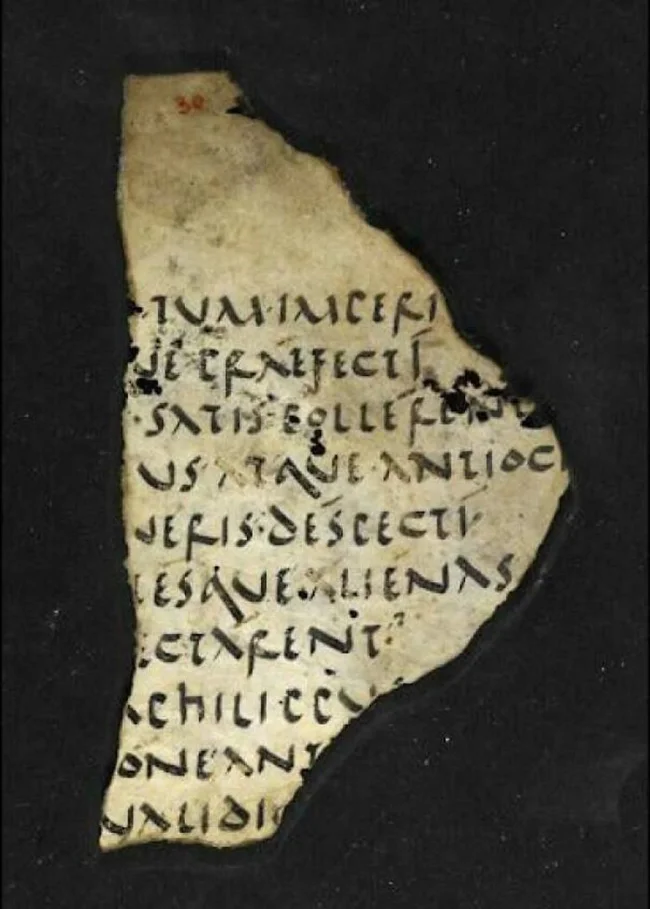 30
IUM·IMPERI
UE PRAEFECTI
·SATIS·POLLERENT
US ATQUE·ANTIOC
UERIS·DESPECTI
ESQUE·ALIENAS
CTARENT
PHILIPPUS
ONE ANT
UALIDI